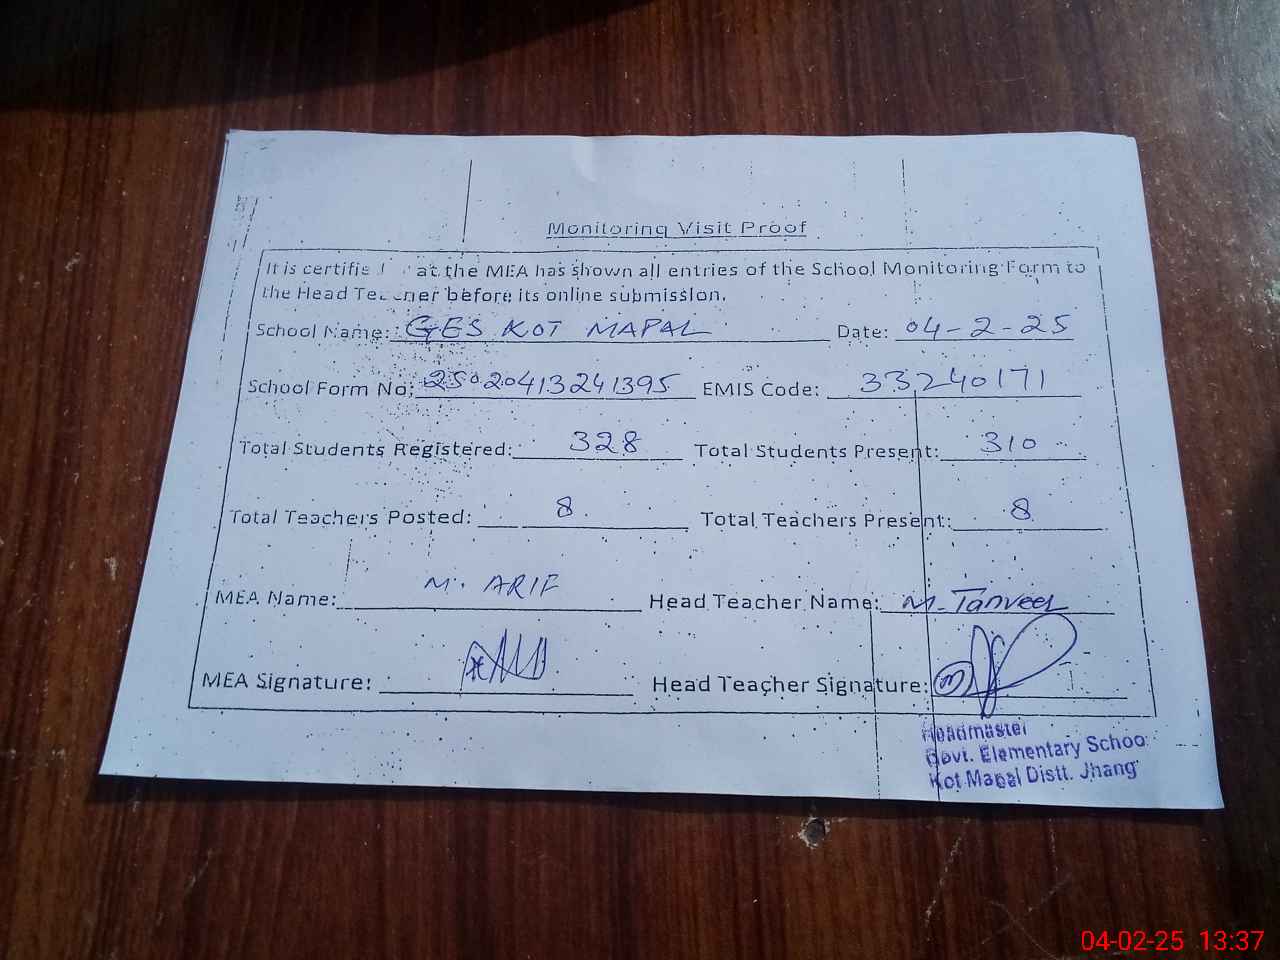 Monitoring Visit Proof
It is certifie at the MEA has shown all entries of the School Monitoring Form to
the Head Teacher before its online submission.
School Name: GES KOT MAPAL Date: 04-2-25
School Form No: 25020413241395 EMIS Code: 33240171
Total Students Registered: 328 Total Students Present: 310
Total Teachers Posted: 8 Total Teachers Present: 8
MEA Name: M. ARIF Head Teacher Name: M. Tanveer
MEA Signature: Head Teacher Signature:
Headmaster
Govt. Elementary School
Kot Mapal Distt. Jhang
04-02-25 13:37